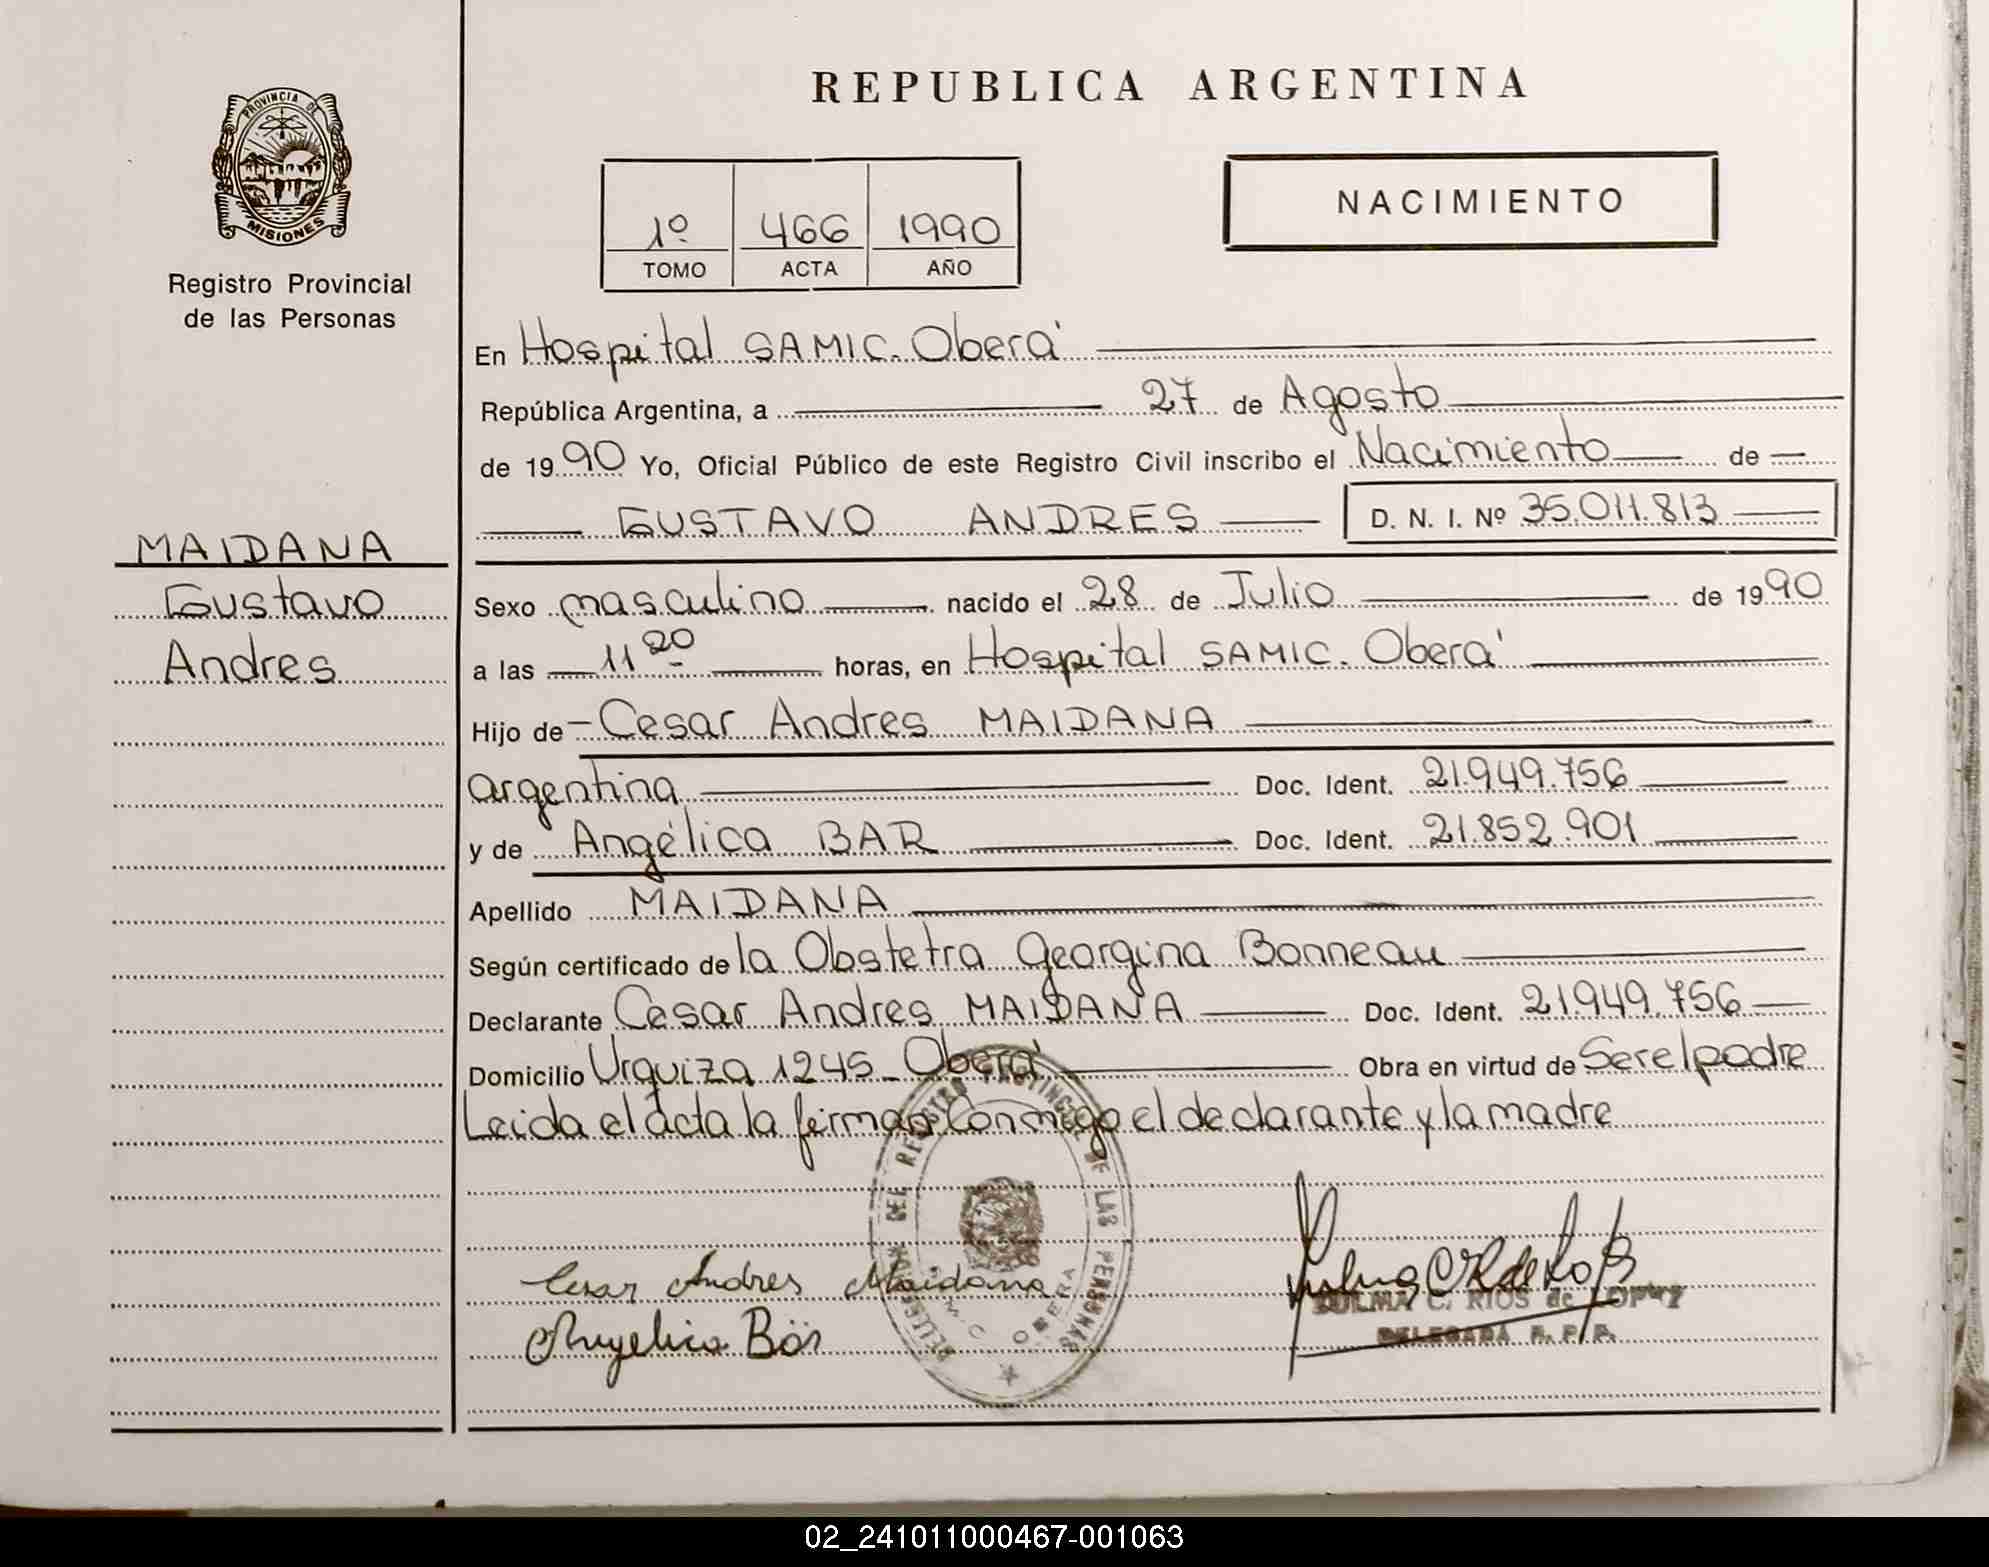 PROVINCIA DE
MISIONES
Registro Provincial
de las Personas
MAIDANA
Gustavo
Andres
REPUBLICA ARGENTINA
1º 466 1990
TOMO ACTA AÑO
NACIMIENTO
En Hospital SAMIC. Oberá
República Argentina, a 27 de Agosto
de 1990 Yo, Oficial Público de este Registro Civil inscribo el Nacimiento de
GUSTAVO ANDRES D. N. I. Nº 35.011.813
Sexo masculino nacido el 28 de Julio de 1990
a las 11 20 horas, en Hospital SAMIC. Oberá
Hijo de Cesar Andres MAIDANA
argentina Doc. Ident. 21.949.756
y de Angélica BAR Doc. Ident. 21.852.901
Apellido MAIDANA
Según certificado de la Obstetra Georgina Bonneau
Declarante Cesar Andres MAIDANA Doc. Ident. 21.949.756
Domicilio Urquiza 1245_ Oberá Obra en virtud de Ser el padre
Leida el acta la firman Conmigo el declarante y la madre
DEL REGISTRO PROVINCIAL DE LAS PERSONAS
OBERA
Cesar Andres Maidana
Angelica Bär
ZULMA C. RIOS de LOPEZ
DELEGADA R. P. P.
02_241011000467-001063